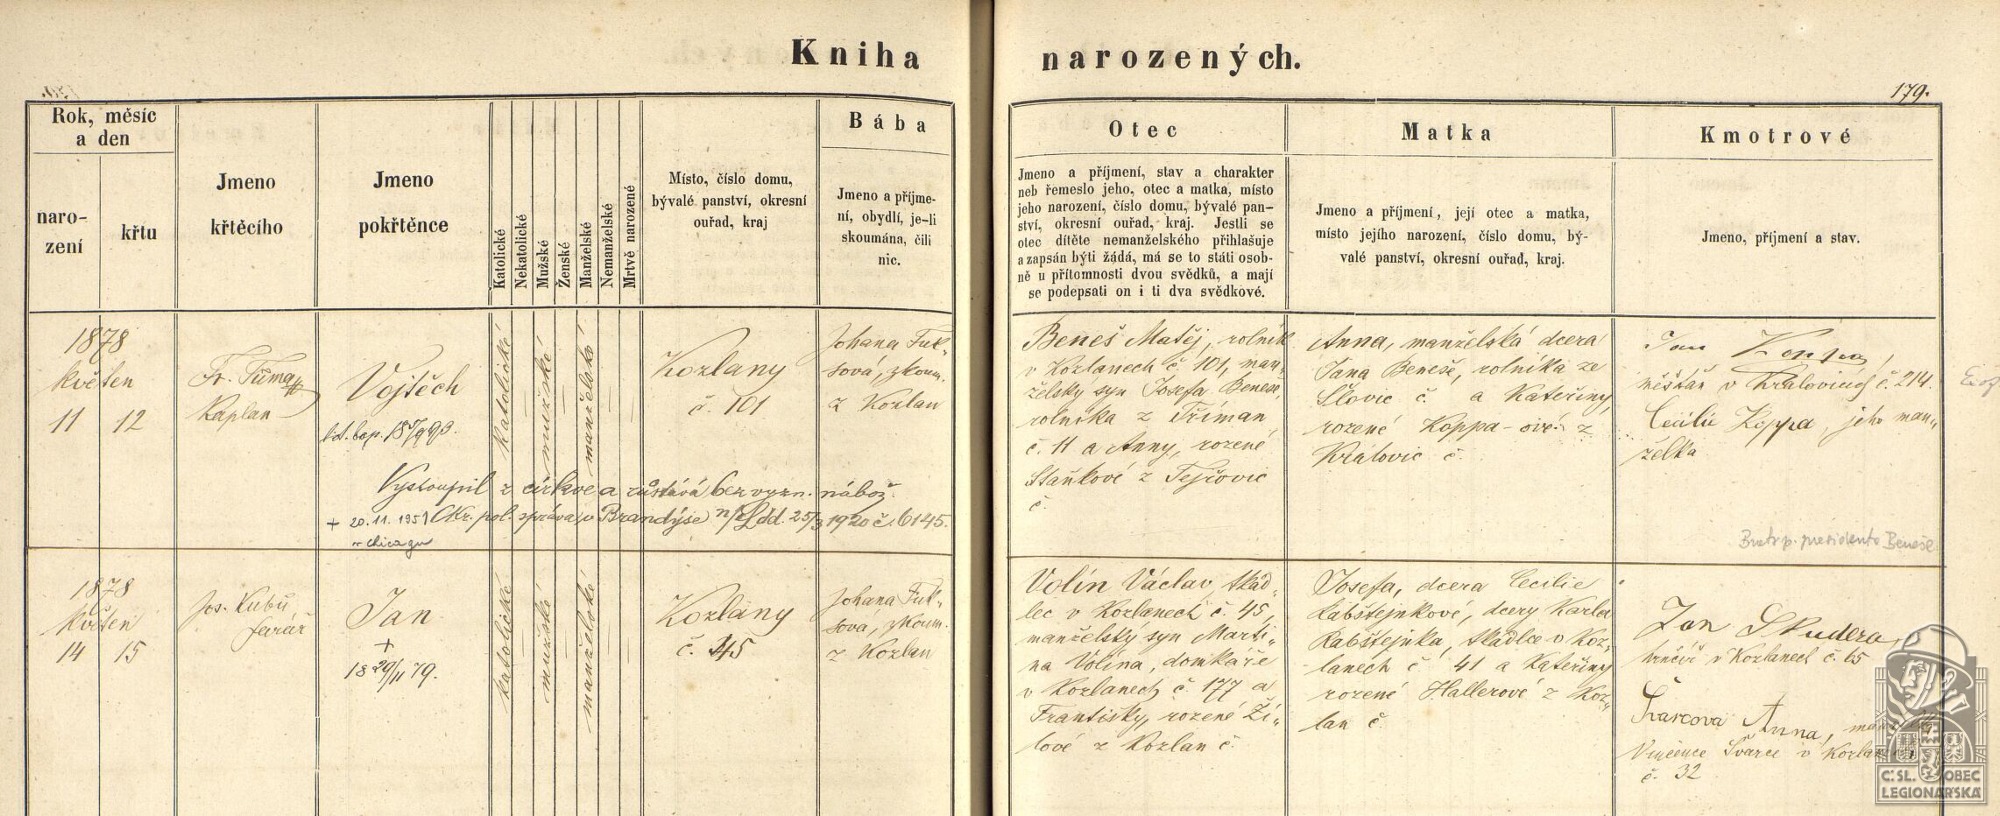 Kniha narozených.
179.
Rok, měsíc
a den
naro-
zení
křtu
Jmeno
křtěcího
Jmeno
pokřtěnce
Katolické
Nekatolické
Mužské
Ženské
Manželské
Nemanželské
Mrtvě narozené
Místo, číslo domu,
bývalé panství, okresní
ouřad, kraj
Bába
Jmeno a příjme-
ní, obydlí, je-li
skoumána, čili
nic.
Otec
Jmeno a příjmení, stav a charakter
neb řemeslo jeho, otec a matka, místo
jeho narození, číslo domu, bývalé pan-
ství, okresní ouřad, kraj. Jestli se
otec dítěte nemanželského přihlašuje
a zapsán býti žádá, má se to státi osob-
ně u přítomnosti dvou svědků, a mají
se podepsati on i ti dva svědkové.
Matka
Jmeno a příjmení, její otec a matka,
místo jejího narození, číslo domu, bý-
valé panství, okresní ouřad, kraj.
Kmotrové
Jmeno, příjmení a stav.
1878
květen
11 12
Fr. Tůma
Kaplan
Vojtěch
katolické
mužské
manželské
Kozlany
č. 101
Johana Fuk-
sová, zkoum.
z Kozlan
Vystoupil z církve a zůstává bez vyzn. nábož.
+ 20.11.1951 Okr. pol. správa v Brandýse n/L dd. 25/3 1920 č. 6145.
v Chicagu
Beneš Matěj, rolník
v Kozlanech č. 101, man-
želský syn Josefa Beneše,
rolníka z Tříman
č. 11 a Anny, rozené
Staňkové z Tejřovic
č.
Anna, manželská dcera
Jana Beneše, rolníka ze
Slovic č. a Kateřiny,
rozené Koppa-ové z
Královic č.
Jan Koppa,
měšťan v Kralovicích č. 214.
Cecilie Koppa, jeho man-
želka
Bratr p. presidenta Beneše
1878
květen
14 15
Jos. Kubů,
farář
Jan
+
18 29/11 79.
katolické
mužské
manželské
Kozlany
č. 45
Johana Fuk-
sova, zkoum.
z Kozlan
Volín Václav, tkad-
lec v Kozlanech č. 45,
manželský syn Marti-
na Volína, domkáře
v Kozlanech č. 177 a
Františky, rozené Ží-
lové z Kozlan č.
Josefa, dcera Cecilie
Rabštejnkové, dcery Karla
Rabštejnka, tkadlce v Koz-
lanech č. 41 a Kateřiny
rozené Hallerové z Koz-
lan č.
Jan Skudera,
hrnčíř v Kozlanech č. 65
Švarcova Anna,
Vincence Švarce v Kozlanech
č. 32
Č.SL. OBEC
LEGIONÁŘSKÁ